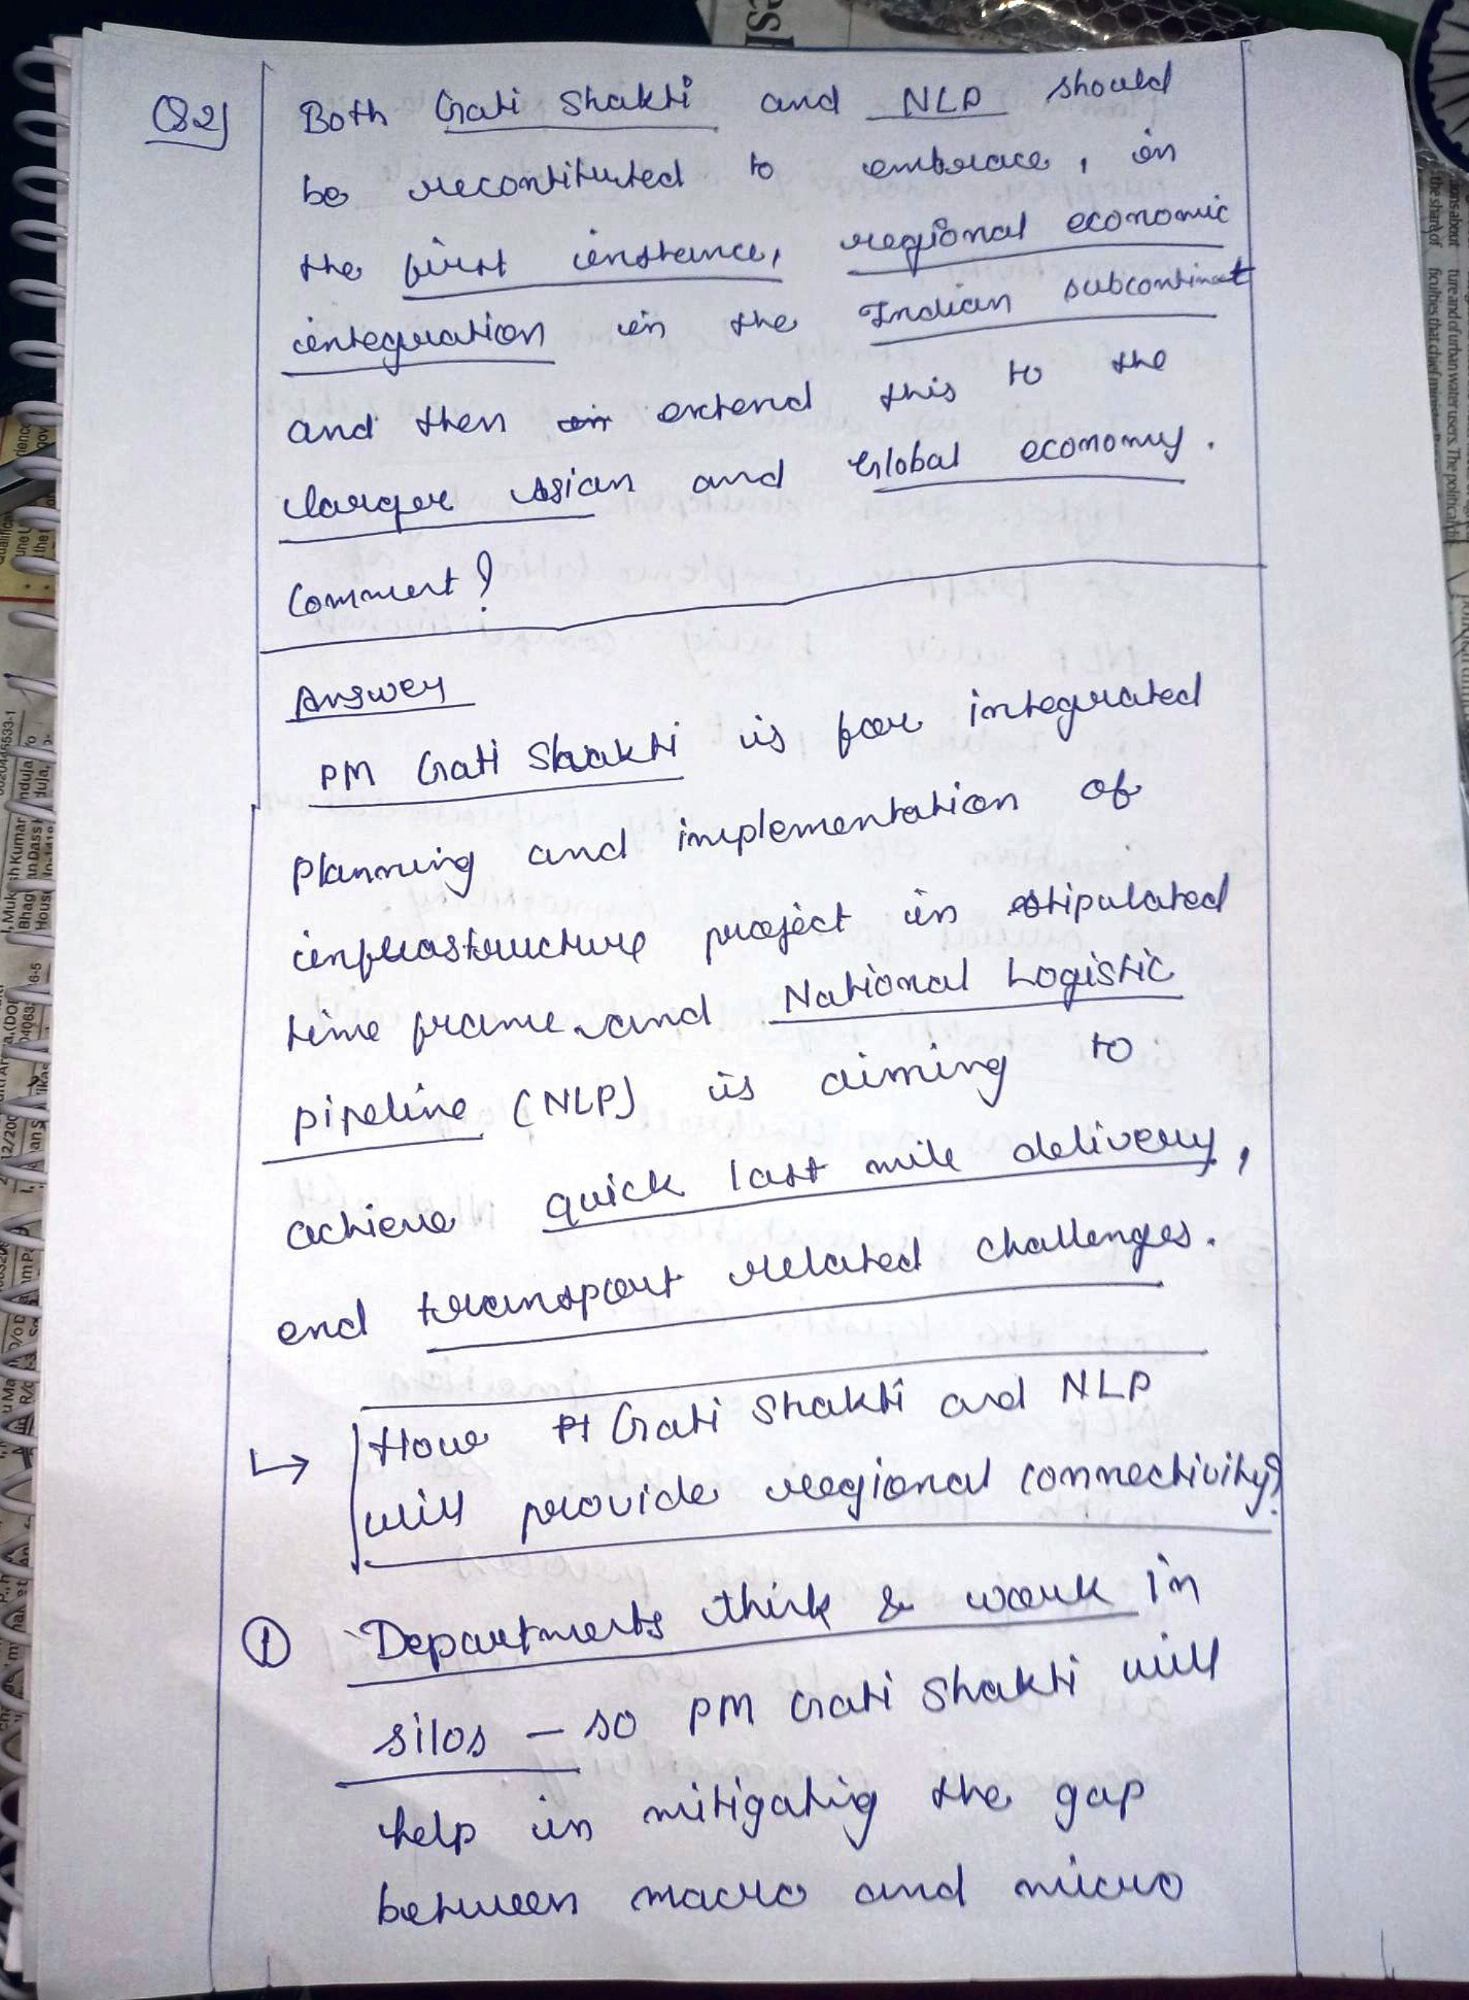 Q2) Both Gati Shakti and NLP should
be recontituted to embrace, in
the first instance, regional economic
integration in the Indian subcontinent
and then extend this to the
larger Asian and Global economy.
Comment?
Answer
PM Gati Shakti is for integrated
Planning and implementation of
infrastructure project in stipulated
time frame and National Logistic
pipeline (NLP) is aiming to
achieve quick last mile delivery,
end transport related challenges.
↳ How Gati Shakti and NLP
will provide regional connectivity?
① Departments think & work in
silos - so PM Gati Shakti will
help in mitigating the gap
between macro and micro